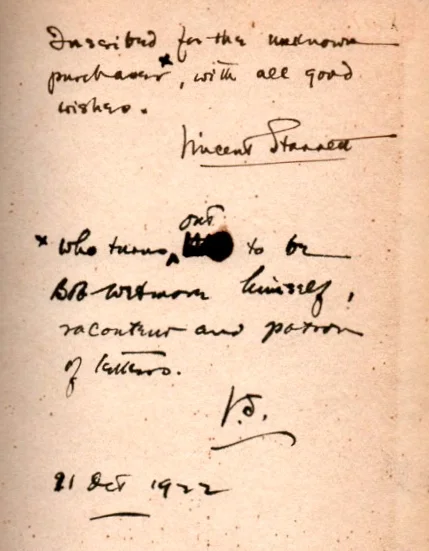 Inscribed for the unknown
purchaser*, with all good
wishes.
Vincent Starrett
out
* who turns ‸ to be
Bob Wetmore himself,
raconteur and patron
of letters.
V.S.
21 Oct 1922